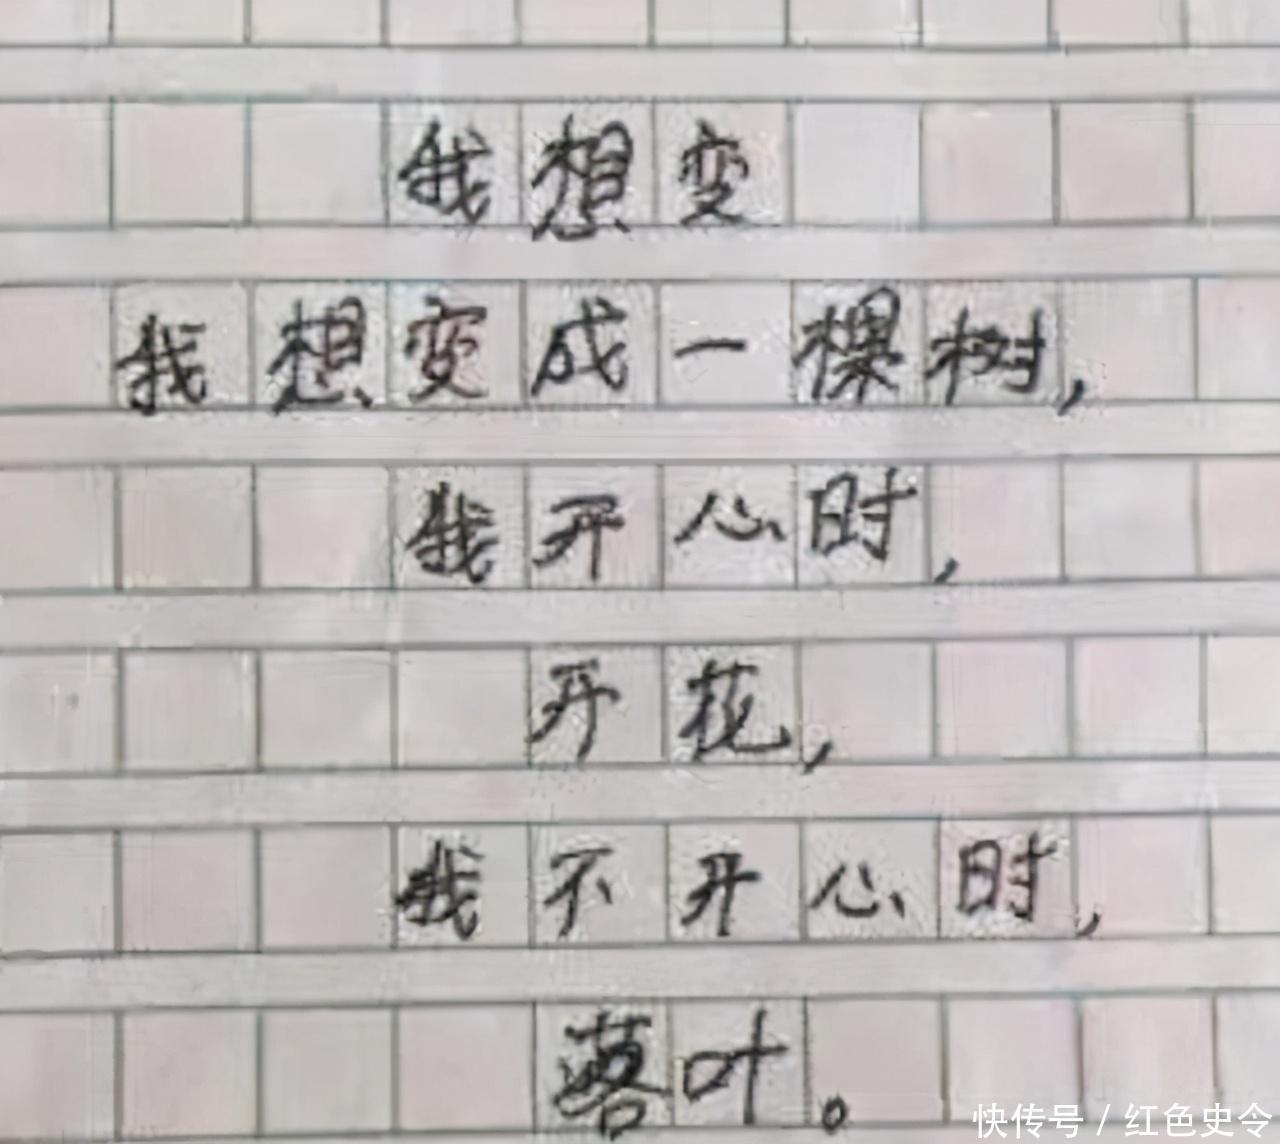 我想变
我想变成一棵树，
我开心时，
开花，
我不开心时，
落叶。
快传号 / 红色史令